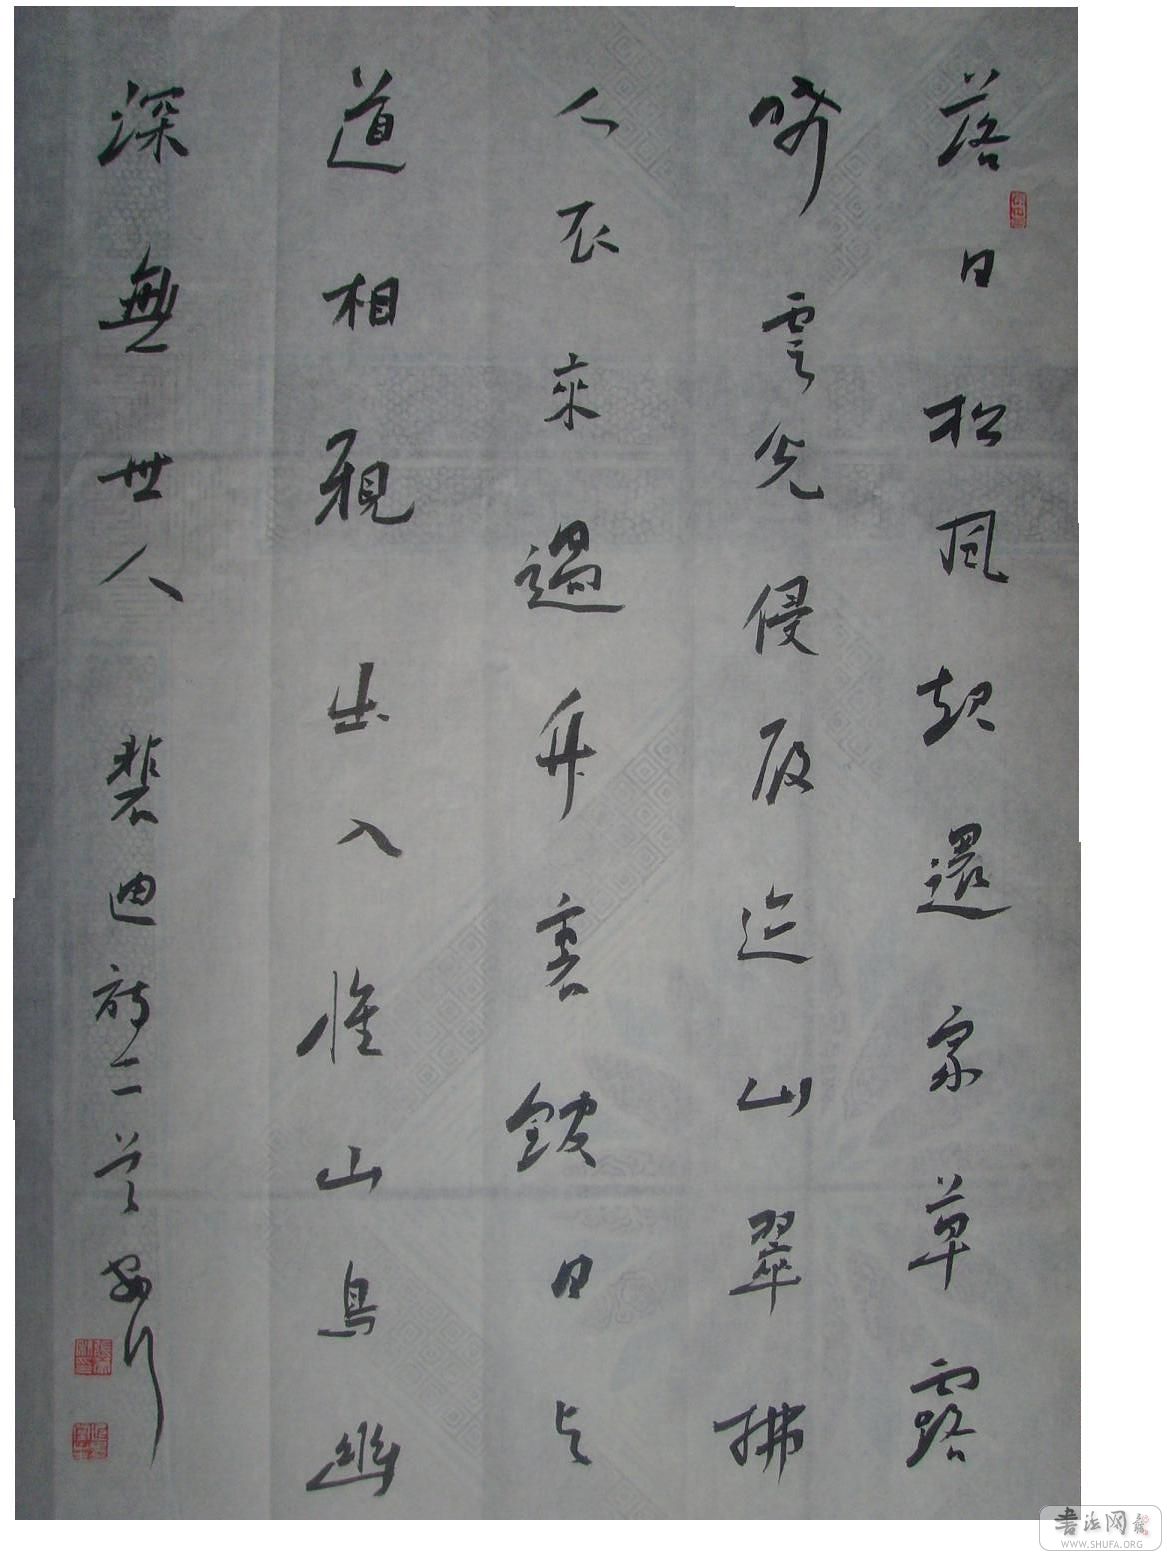 落日松風起還家草露
晞雲光侵履迹山翠拂
人衣來過竹裏館日与
道相親出入惟山鳥幽
深無世人 裴迪詩二首
书法网
WWW.SHUFA.ORG